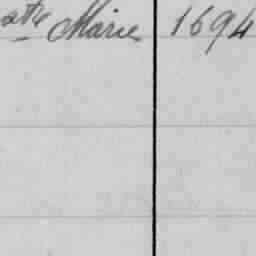 Ste Marie 1694